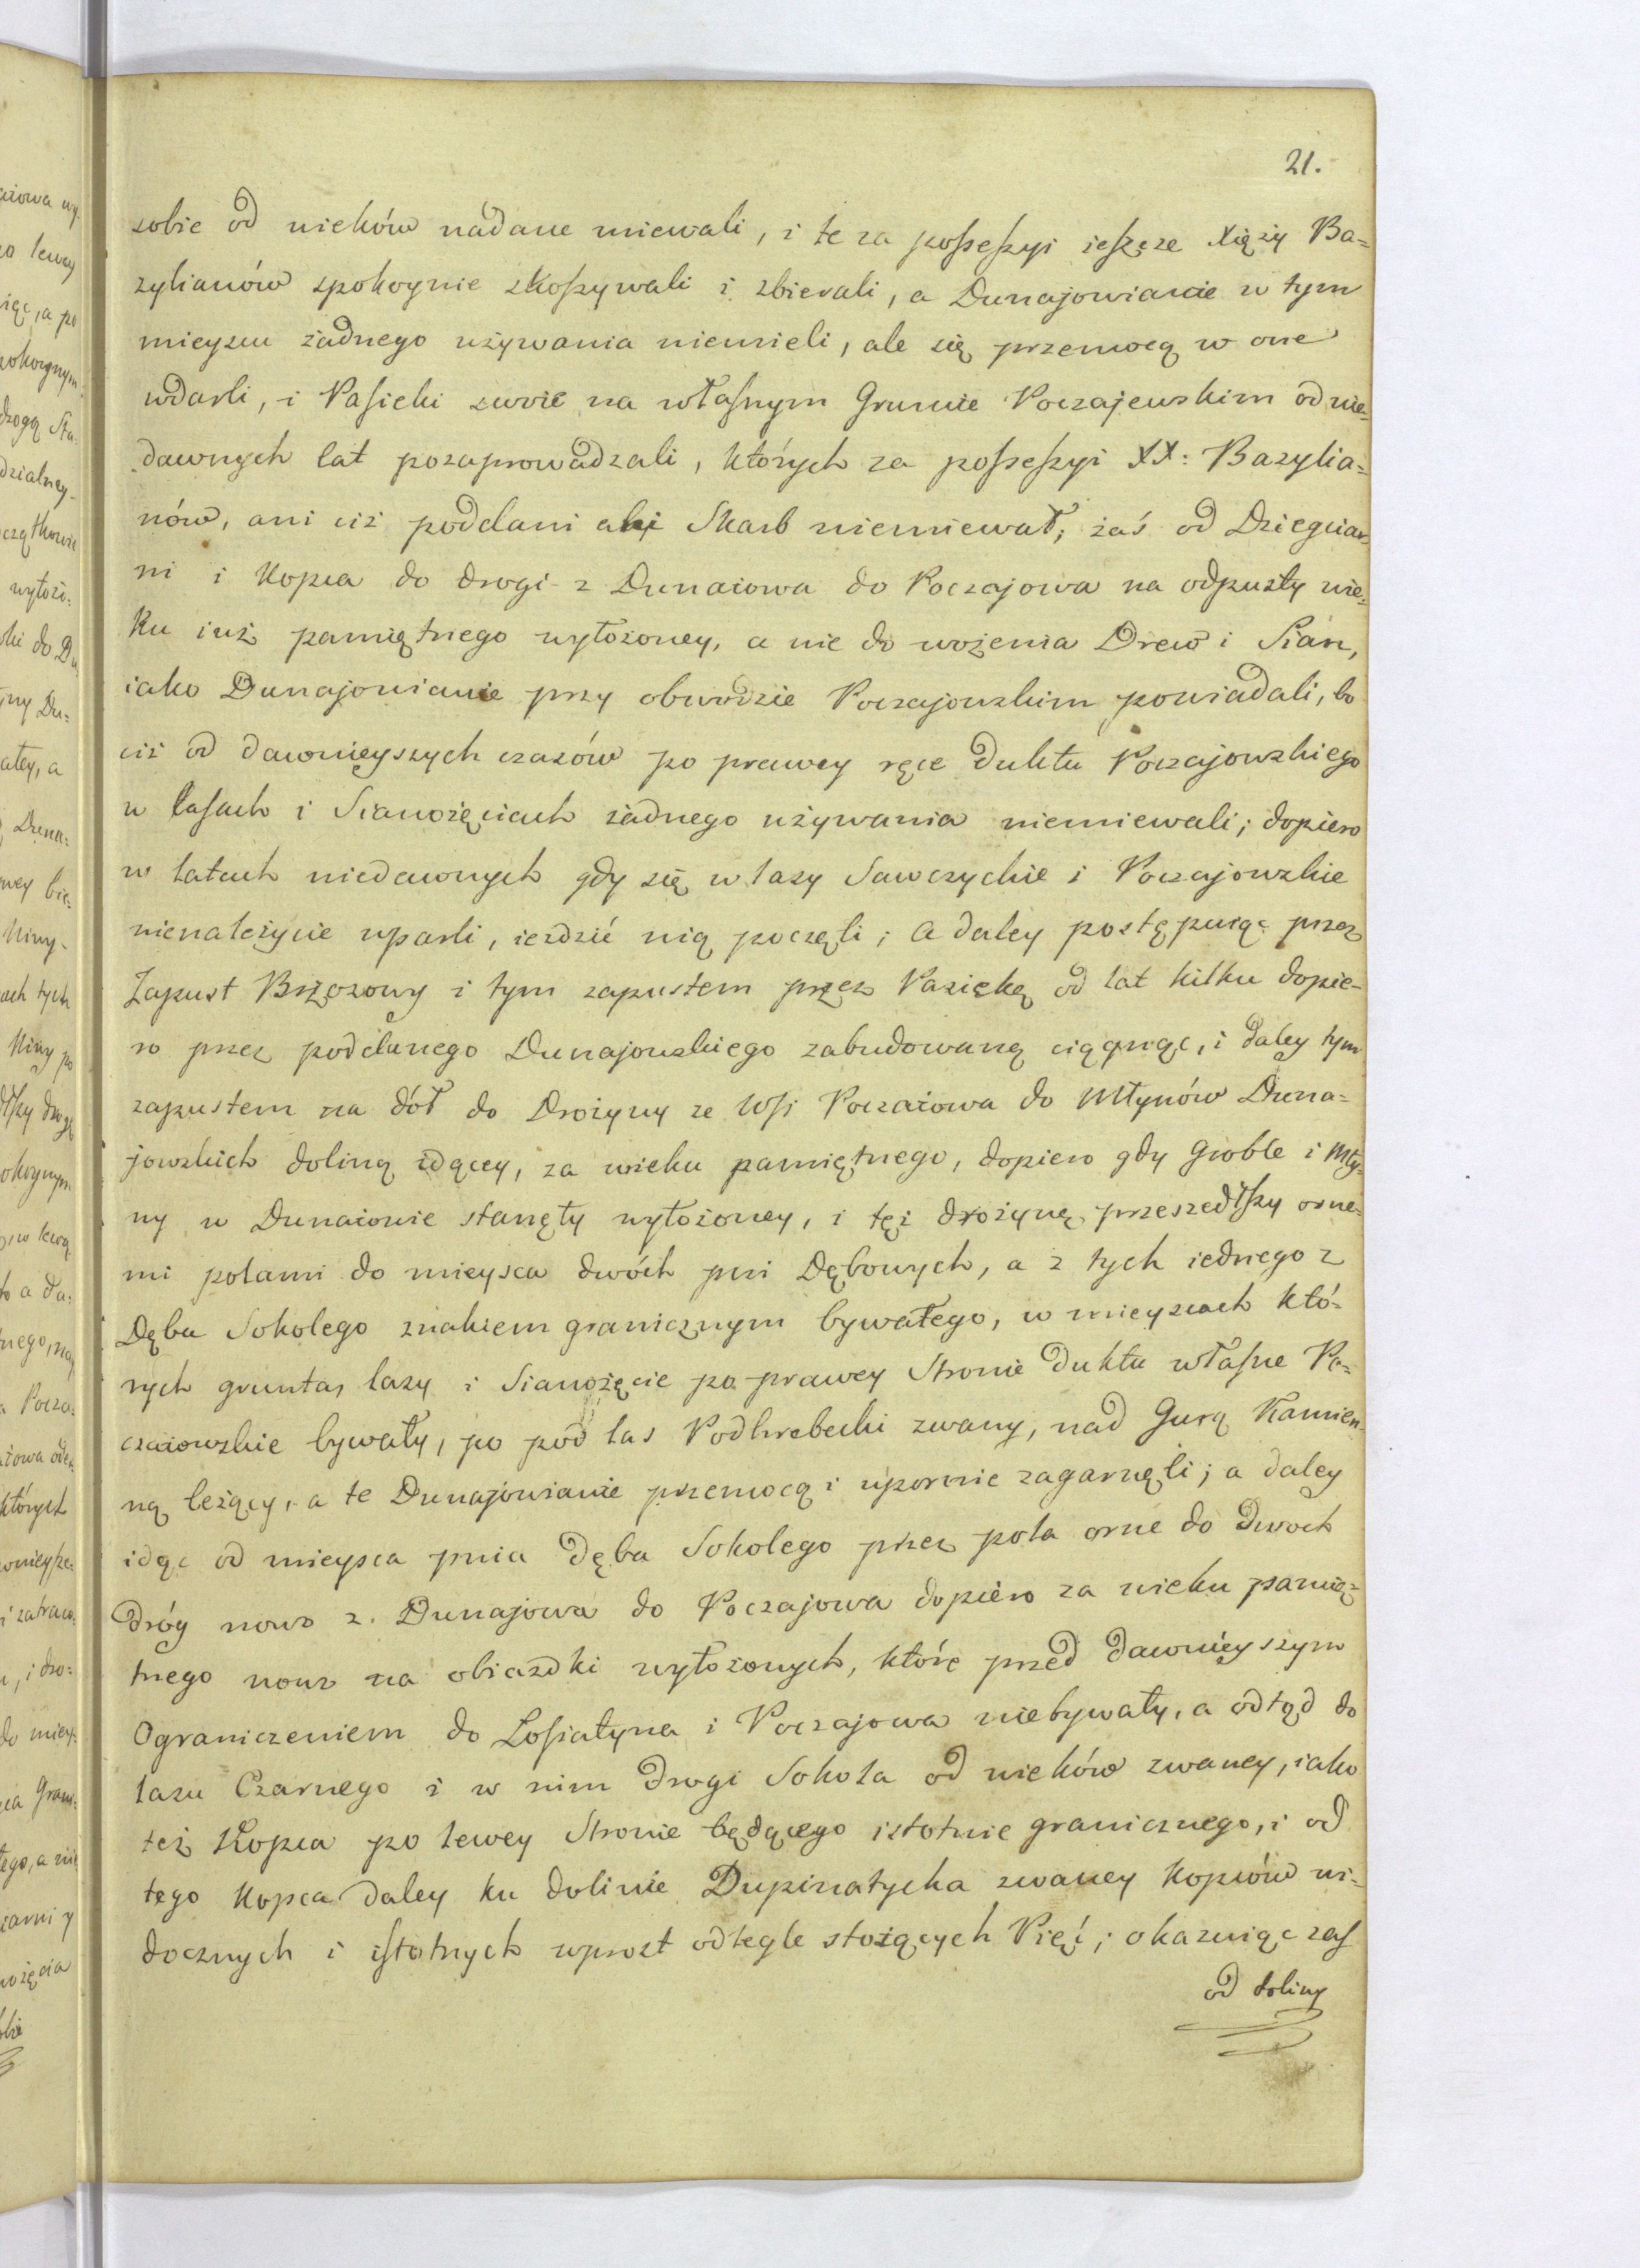 21.
sobie od wieków nadane miewali, i te za possessyi ieszcze Xięży Ba=
zylianów spokoynie skoszywali i zbierali, a Dunajowianie w tym
mieyscu żadnego używania niemieli, ale się przemocą w one
wdarli, i Pasieki swoie na własnym Gruncie Poczajewskim od nie=
dawnych lat pozaprowadzali, których za possessyi XX: Bazylia=
nów, ani ciż poddani ani Skarb niemiewał; zaś od Dziegciar=
ni i Kopca do drogi z Dunaiowa do Poczajowa na odpusty wie=
ku iuż pamiętnego wyłożoney, a nie do wożenia Drew i Sian,
iako Dunajowianie przy obwodzie Poczajowskim powiadali, bo
ciż od dawnieyszych czasów po prawey ręce duktu Poczajowskiego
w lasach i Sianożęciach żadnego używania niemiewali; dopiero
w latach niedawnych gdy się w lasy Sawczyckie i Poczajowskie
nienależycie wparli, ieździć nią poczęli; a daley postępuiąc przez
Zapust Brzozowy i tym zapustem przez Pasiekę od lat kilku dopie-
ro przez poddanego Dunajowskiego zabudowaną ciągnąc, i daley tym
zapustem na dół do Drożyny ze Wsi Poczaiowa do Młynów Duna=
jowskich doliną idącey, za wieku pamiętnego, dopiero gdy Groble i Mły=
ny w Dunaiowie stanęły wyłożoney, i też drożynę przeszedłszy orne=
mi polami do mieysca dwóch pni Dębowych, a z tych iednego z
Dębu Sokolego znakiem granicznym bywałego, w mieyscach któ=
rych grunta, lasy i Sianożęcie po prawey Stronie duktu własne Po=
czaiowskie bywały, po pod las Podhrebecki zwany, nad Gurą Kamien=
ną leżący, a te Dunajowianie przemocą i upornie zagarnęli; a daley
idąc od mieysca pnia dęba Sokolego przez pola orne do dwoch
dróg nowo z Dunajowa do Poczajowa dopiero za wieku pamię=
tnego nowo na obiazdki wyłożonych, które przed dawnieyszym
Ograniczeniem do Łosiatyna i Poczajowa niebywały, a odtąd do
lasu Czarnego i w nim drogi Sokola od wieków zwaney, iako
też Kopca po lewey Stronie będącego istotnie granicznego, i od
tego Kopca daley ku dolinie Dupinatycha zwaney Kopców wi=
docznych i istotnych wprost odlegle stoiących Pięć; okazuiąc zaś
od doliny